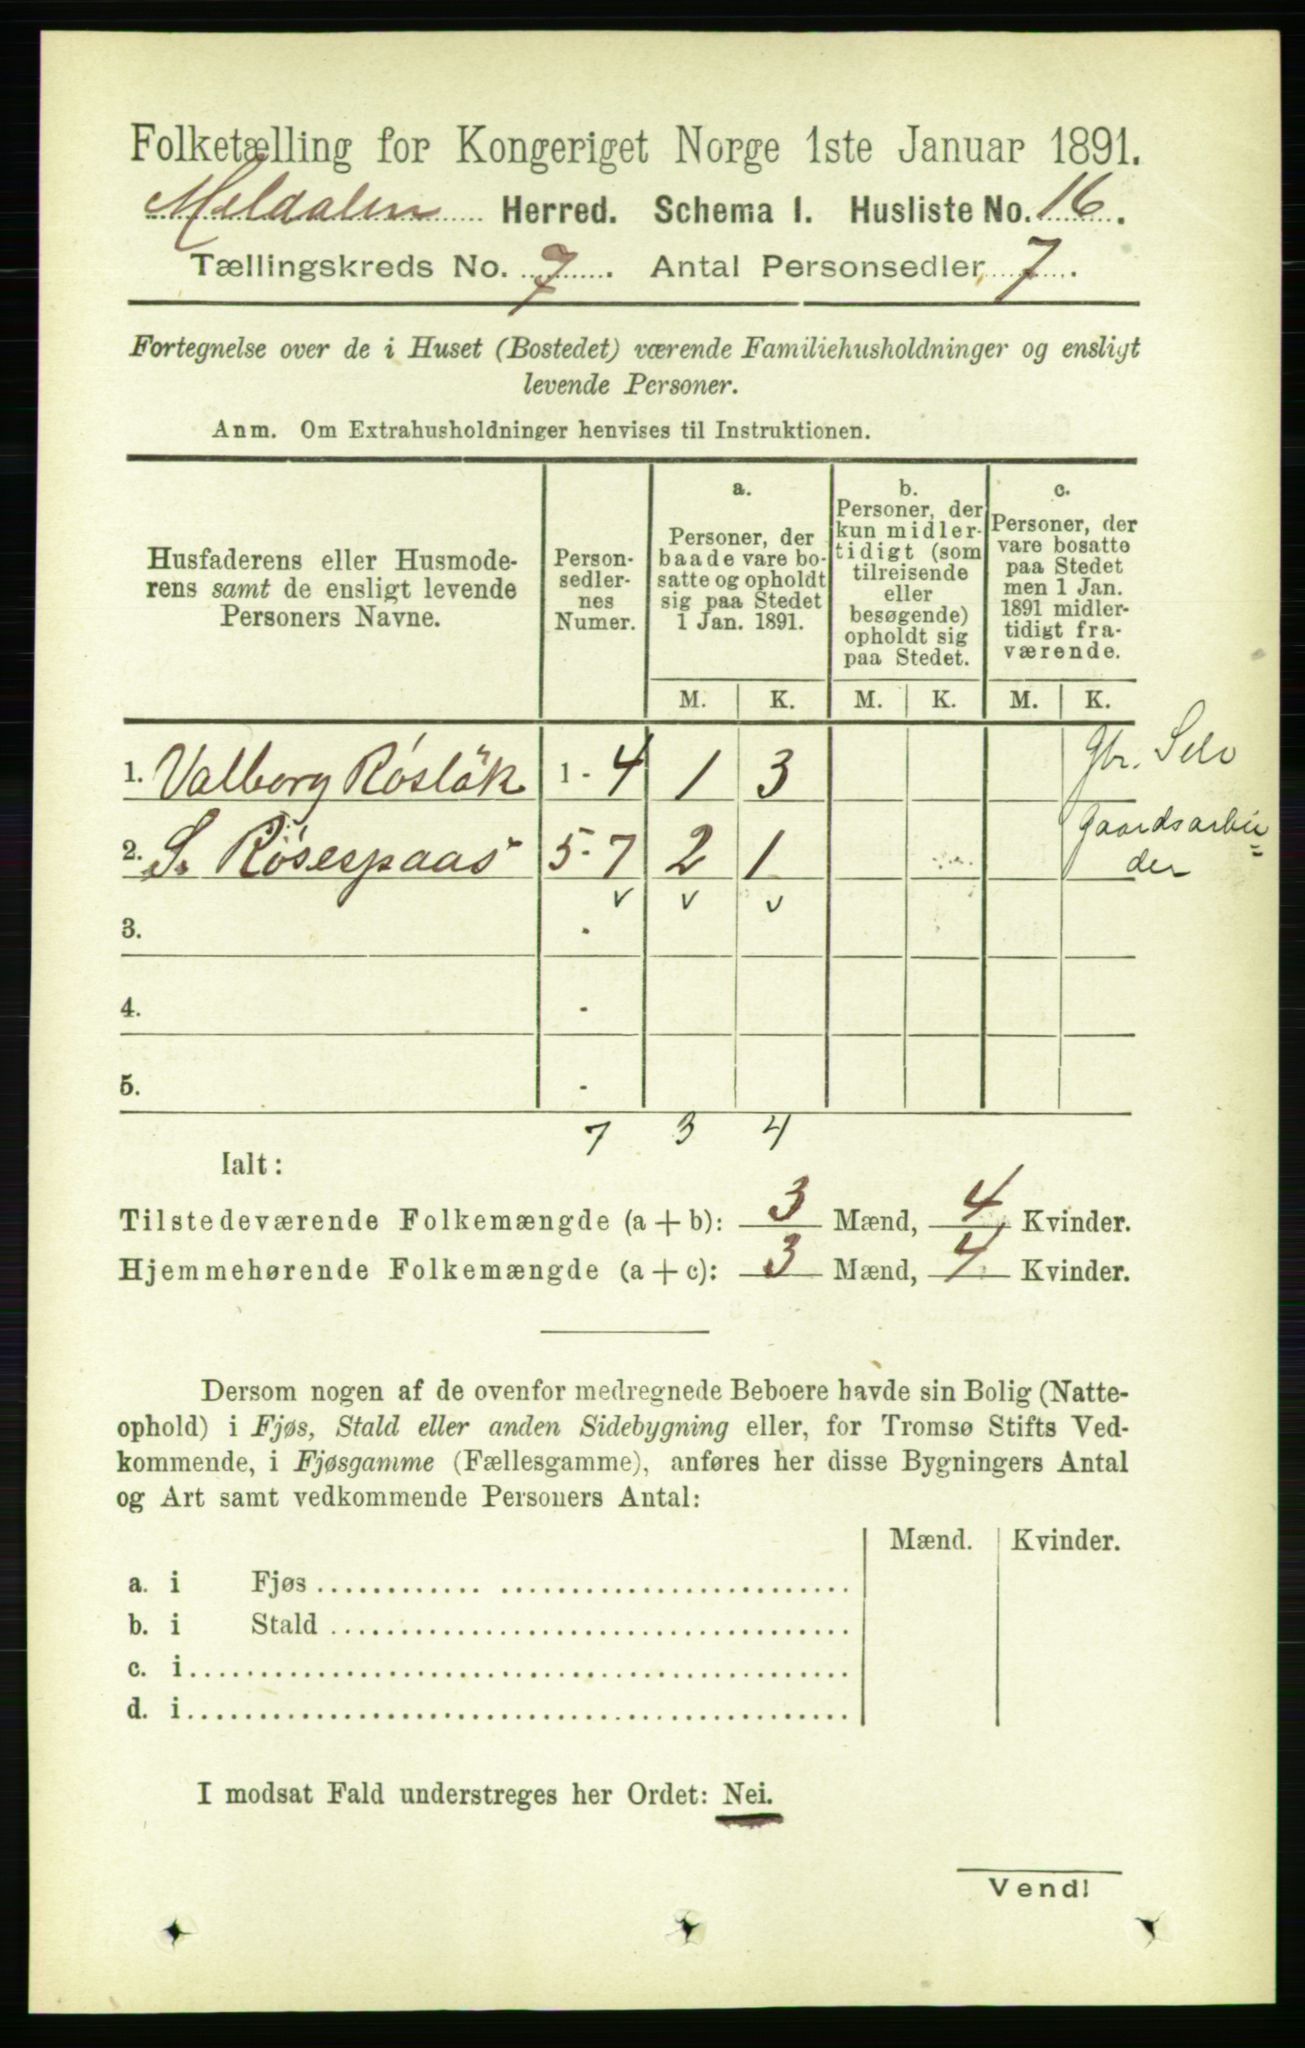 Folketælling for Kongeriget Norge 1ste Januar 1891.
Meldalen Herred. Schema I. Husliste No. 16.
Tællingskreds No. 7. Antal Personsedler 7.
Fortegnelse over de i Huset (Bostedet) værende Familiehusholdninger og ensligt
levende Personer.
Anm. Om Extrahusholdninger henvises til Instruktionen.
Husfaderens eller Husmode-
rens samt de ensligt levende
Personers Navne.
Person-
sedler-
nes
Numer.
a.
Personer, der
baade vare bo-
satte og opholdt
sig paa Stedet
1 Jan. 1891.
b.
Personer, der
kun midler-
tidigt (som
tilreisende
eller
besøgende)
opholdt sig
paa Stedet.
c.
Personer, der
vare bosatte
paa Stedet
men 1 Jan.
1891 midler-
tidigt fra-
værende.
M. K. M. K. M. K.
1. Valborg Røsløk 1 - 4 1 3 Gbr. Selv
2. S. Røsespaas 5 - 7 2 1 Gaardsarbei=
der
v v v
3. -
4. -
5. -
7 3 4
Ialt:
Tilstedeværende Folkemængde (a + b): 3 Mænd, 4 Kvinder.
Hjemmehørende Folkemængde (a + c): 3 Mænd, 4 Kvinder.
Dersom nogen af de ovenfor medregnede Beboere havde sin Bolig (Natte-
ophold) i Fjøs, Stald eller anden Sidebygning eller, for Tromsø Stifts Ved-
kommende, i Fjøsgamme (Fællesgamme), anføres her disse Bygningers Antal
og Art samt vedkommende Personers Antal:
Mænd. Kvinder.
a. i Fjøs
b. i Stald
c. i
d. i
I modsat Fald understreges her Ordet: Nei.
Vend!